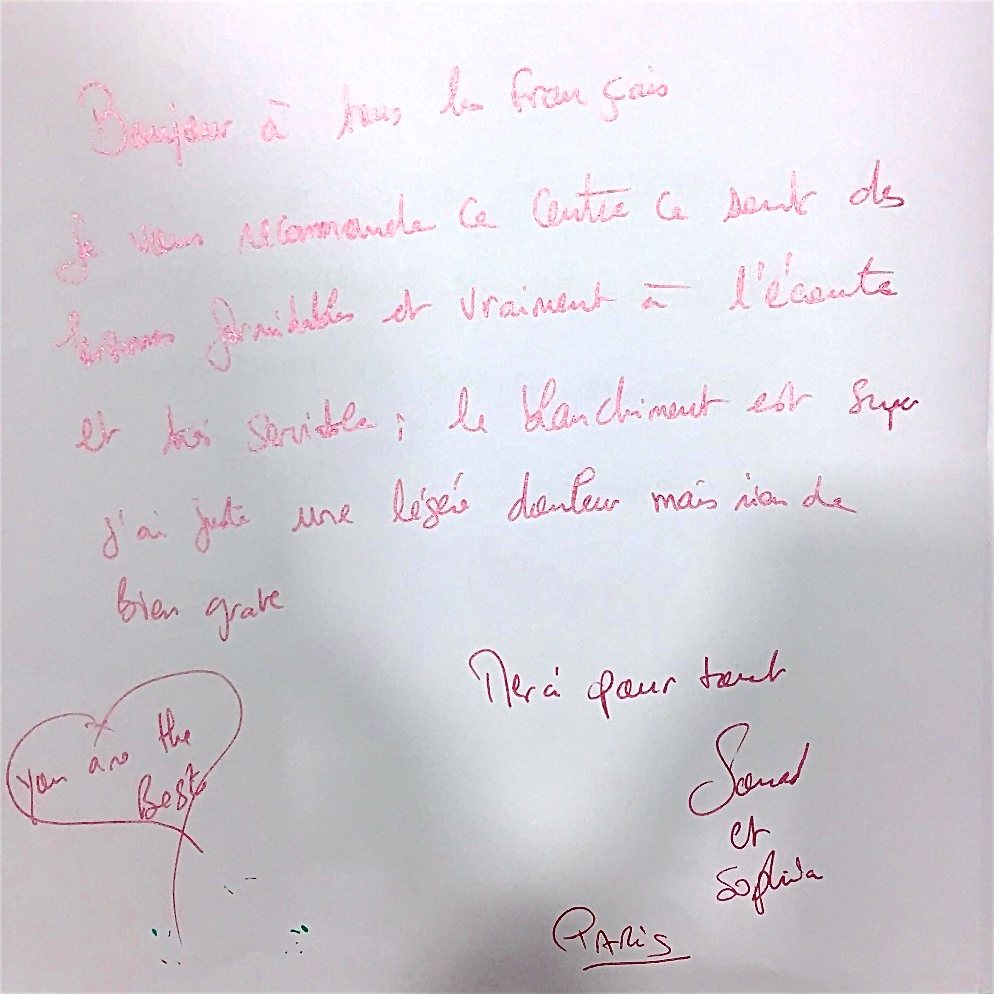 Bonjour à tous les français
Je vous recommande ce centre ce sont des
personnes formidables et vraiment à l'écoute
et très serviable ; le blanchiment est super
j'ai juste une légère douleur mais rien de
bien grave
Merci pour tout
Souad
et
Sophia
PARIS
you are the
Best